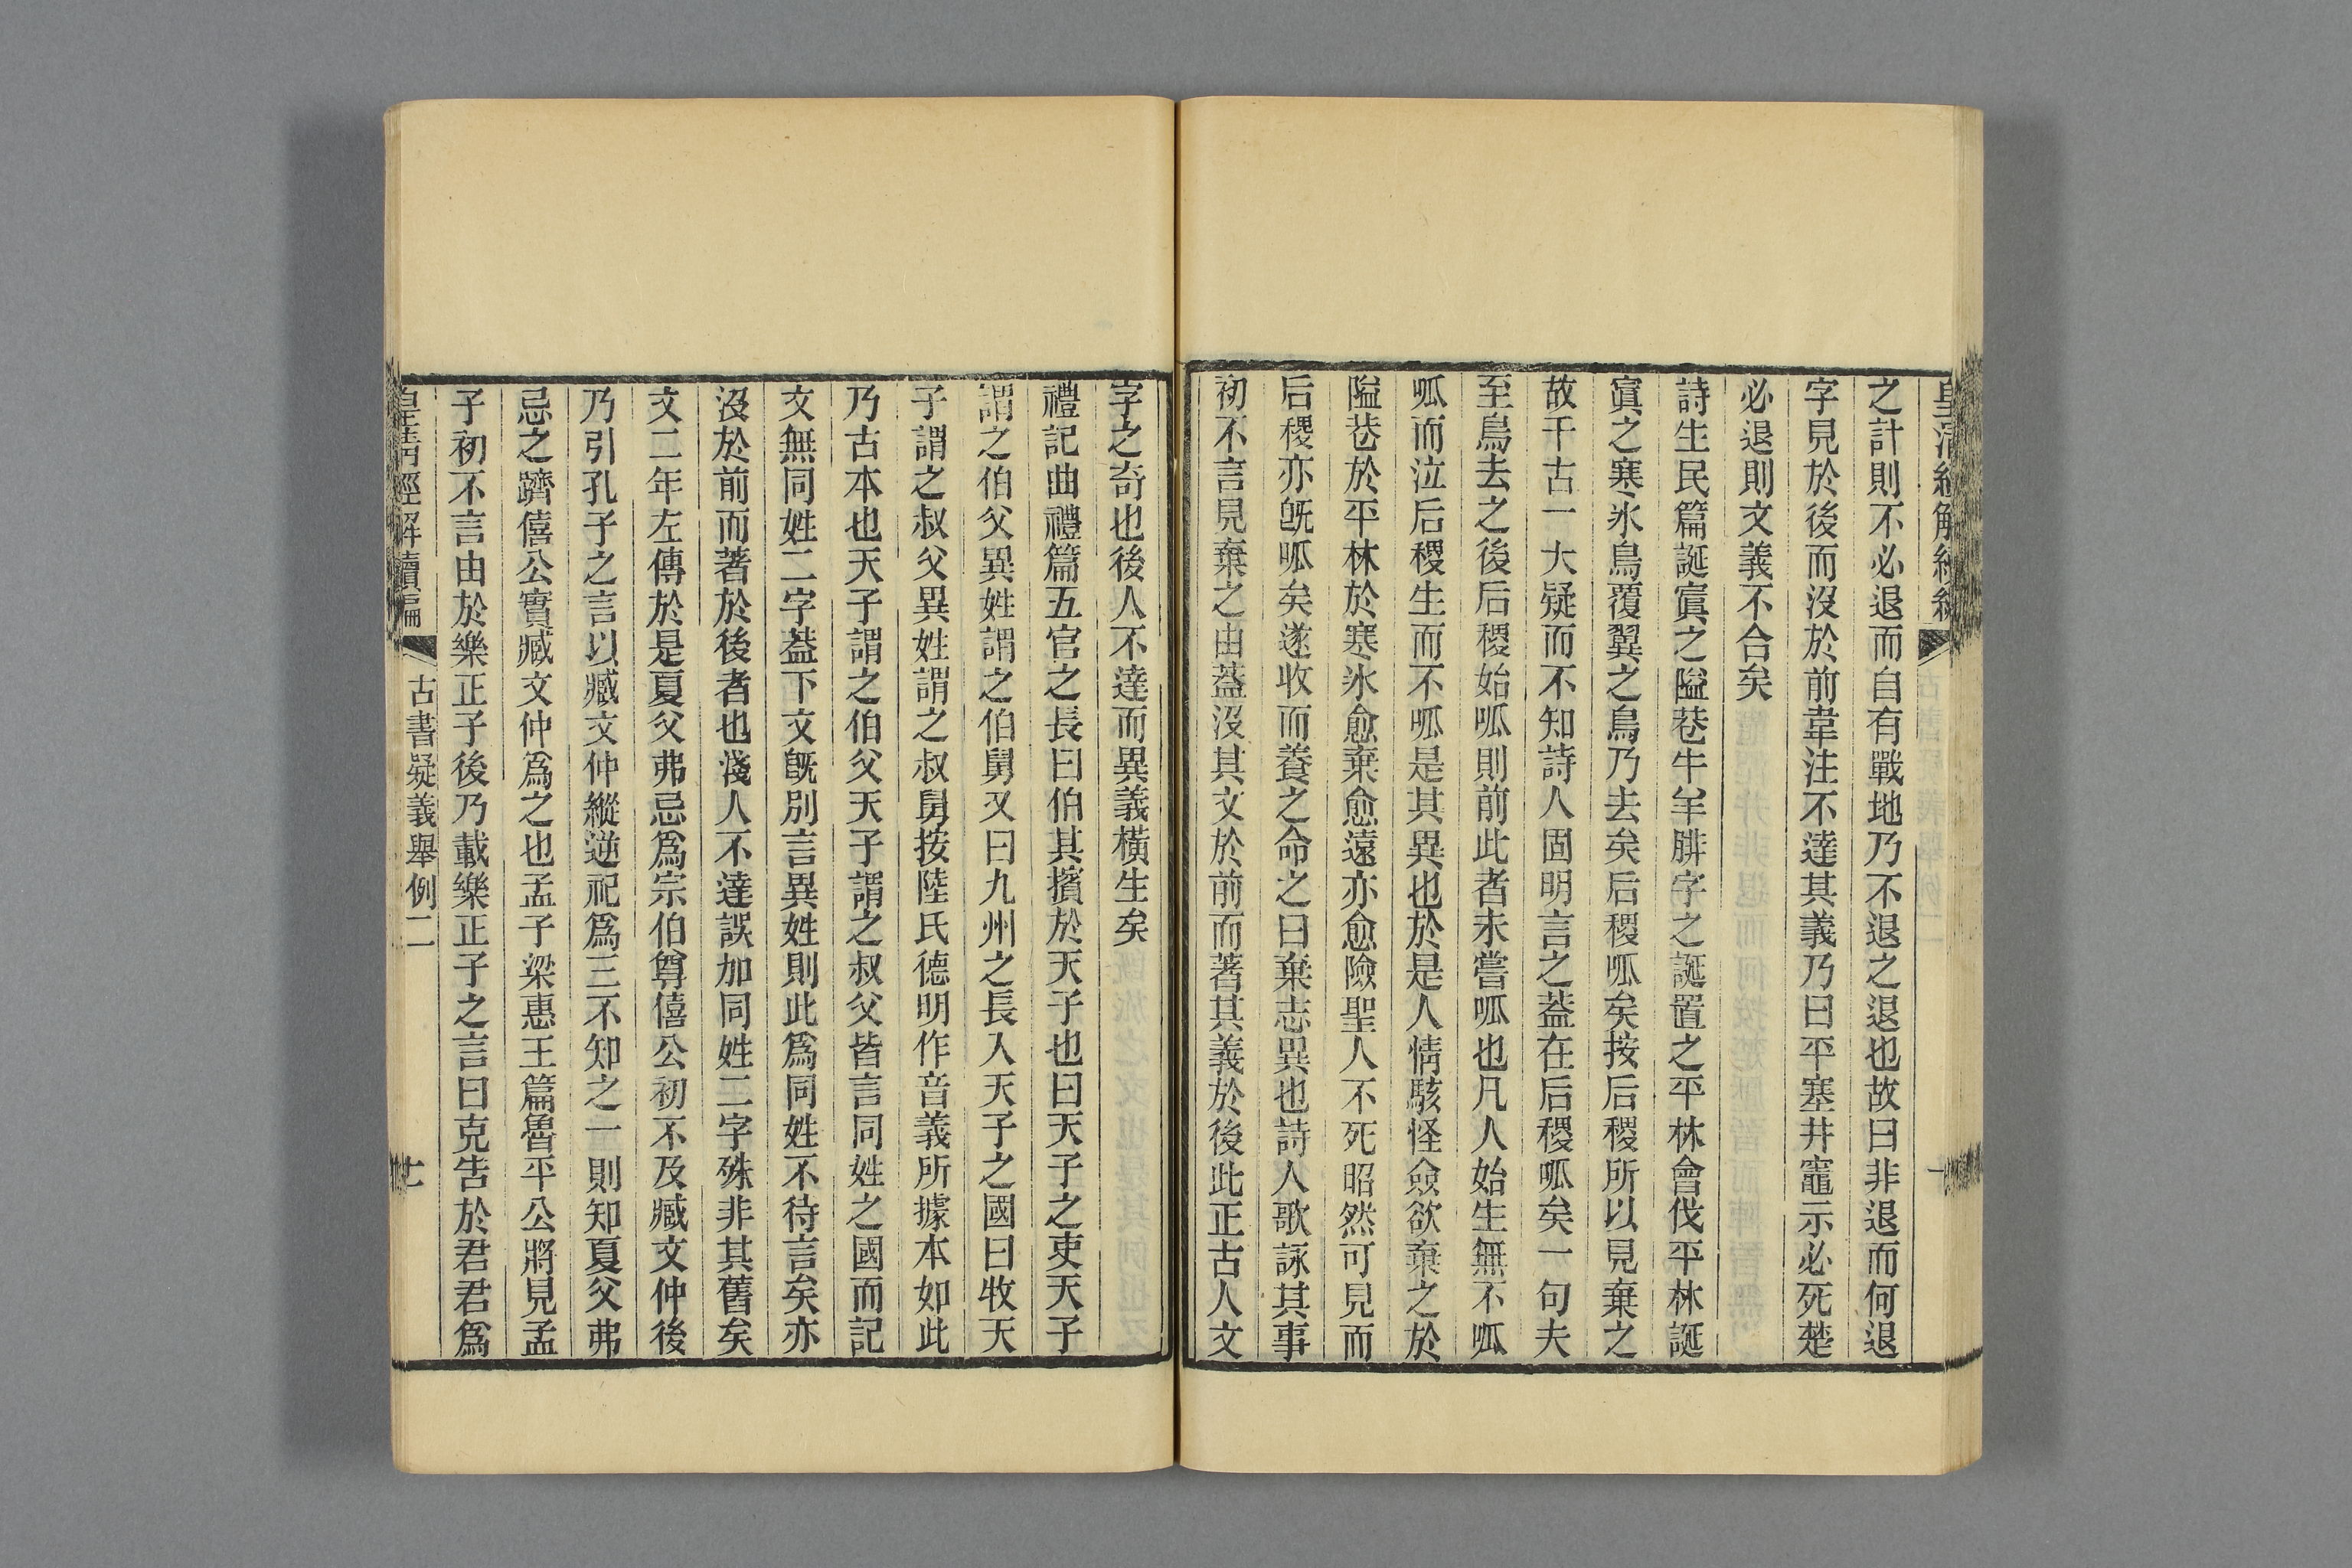 之計則不必退而自有戰地乃不退之退也故曰非退而何退
字見於後而沒於前韋注不達其義乃曰平塞井竈示必死楚
必退則文義不合矣
詩生民篇誕寘之隘巷牛羊腓字之誕置之平林會伐平林誕
寘之寒冰鳥覆翼之鳥乃去矣后稷呱矣按后稷所以見棄之
故千古一大疑而不知詩人固明言之葢在后稷呱矣一句夫
至鳥去之後后稷始呱則前此者未嘗呱也凡人始生無不呱
呱而泣后稷生而不呱是其異也於是人情駭怪僉欲棄之於
隘巷於平林於寒冰愈棄愈遠亦愈險聖人不死昭然可見而
后稷亦旣呱矣遂收而養之命之曰棄志異也詩人歌詠其事
初不言見棄之由葢沒其文於前而著其義於後此正古人文
字之奇也後人不達而異義橫生矣
禮記曲禮篇五官之長曰伯其擯於天子也曰天子之吏天子
謂之伯父異姓謂之伯舅又曰九州之長入天子之國曰牧天
子謂之叔父異姓謂之叔舅按陸氏德明作音義所據本如此
乃古本也天子謂之伯父天子謂之叔父皆言同姓之國而記
文無同姓二字葢下文旣別言異姓則此爲同姓不待言矣亦
沒於前而著於後者也淺人不達誤加同姓二字殊非其舊矣
文二年左傳於是夏父弗忌爲宗伯尊僖公初不及臧文仲後
乃引孔子之言以臧文仲縱逆祀爲三不知之一則知夏父弗
忌之躋僖公實臧文仲爲之也孟子梁惠王篇魯平公將見孟
子初不言由於樂正子後乃載樂正子之言曰克告於君君爲
皇清經解續編 古書疑義舉例二